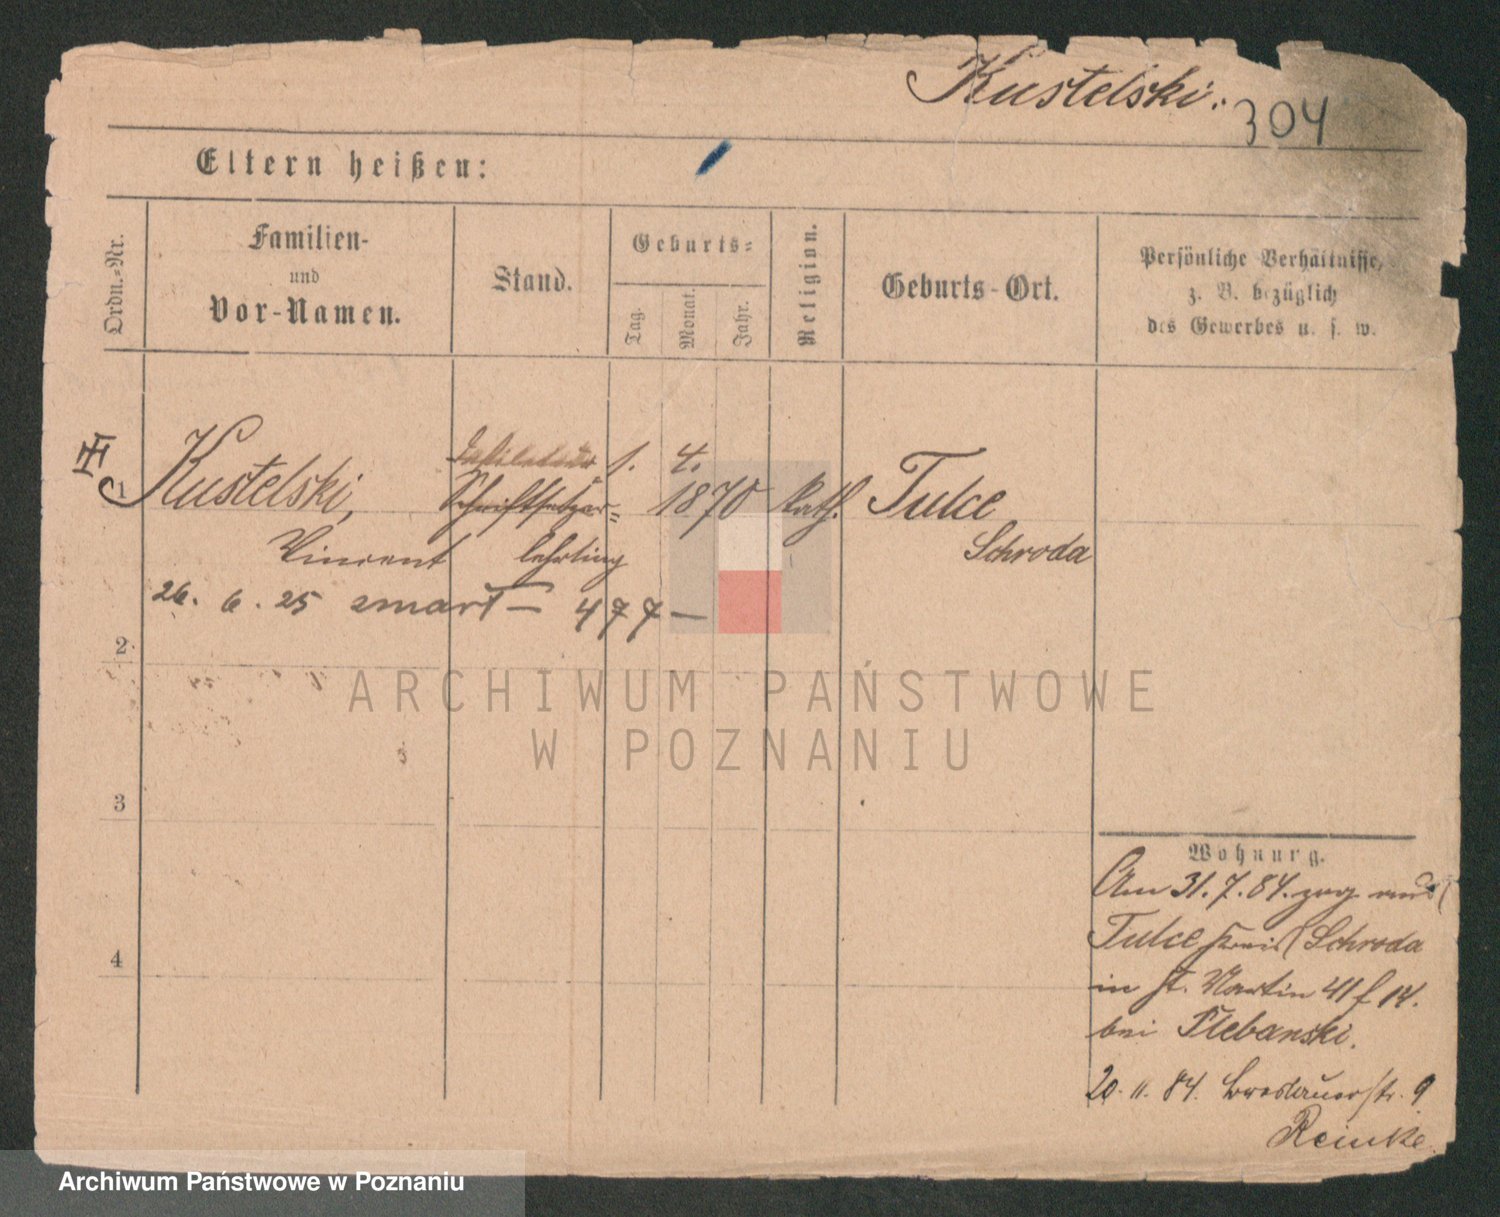 Kustelski.
304
Eltern heißen:
Ordn.-Nr.
Familien-
und
Vor-Namen.
Stand.
Geburts-
Tag.
Monat.
Jahr.
Religion.
Geburts-Ort.
Persönliche Verhältnisse,
z. B. bezüglich
des Gewerbes u. s. w.
1 Kustelski, Schriftsetzer= 1. 4. 1870 kath. Tulce
Vincent lehrling Schroda
26. 6. 25 zmarł — 477 —
2
3
4
Wohnung.
Am 31. 7. 84. zog aus
Tulce Kreis Schroda
in St. Martin 41 f 14.
bei Plebanski.
20. 11. 84. Breslauerstr. 9
Reinke
ARCHIWUM PAŃSTWOWE
W POZNANIU
Archiwum Państwowe w Poznaniu